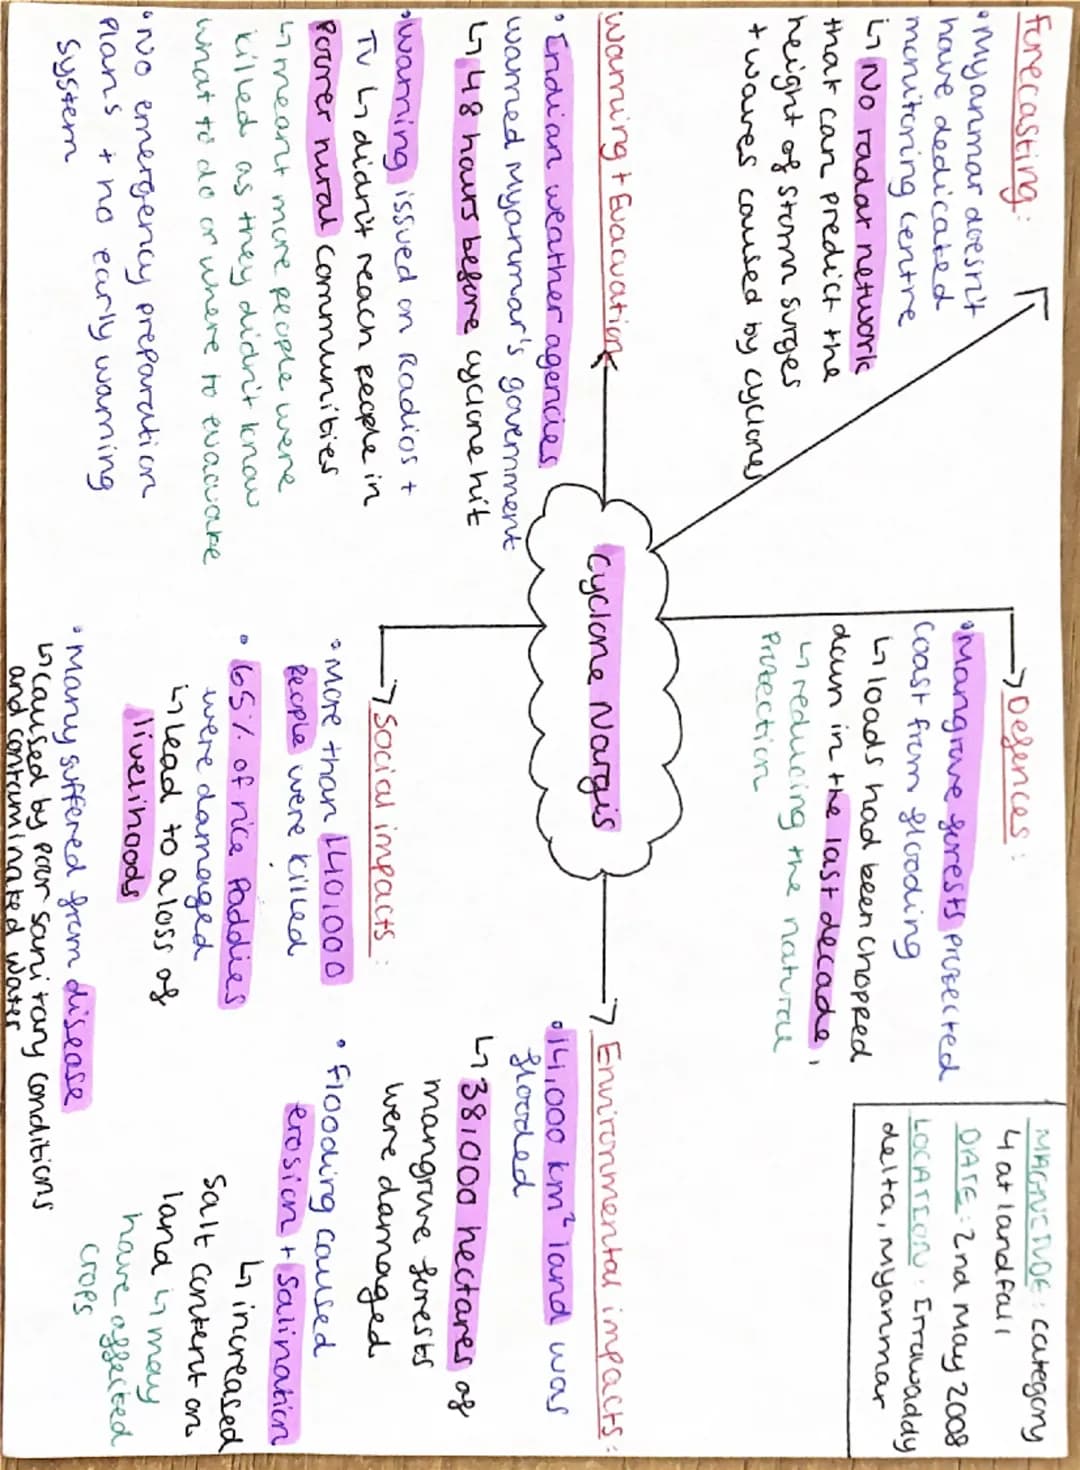 Forecasting:
• Myanmar doesn't
have dedicated
monitoring centre
↳ No radar network
that can predict the
height of storm surges
+ waves caused by cyclones
Warning + Evacuation
• Indian weather agencies
warned Myanmar's government
↳ 48 hours before cyclone hit
• Warning issued on Radios +
TV ↳ didn't reach people in
poorer rural communities
↳ meant more people were
killed as they didn't know
what to do or where to evacuate
• No emergency preparation
plans + no early warning
system
Cyclone Nargis
Defences:
• Mangrove forests protected
coast from flooding
↳ loads had been chopped
down in the last decade,
↳ reducing the natural
protection
Social impacts:
• More than 140,000
people were killed
• 65% of rice paddies
were damaged
↳ lead to a loss of
livelihoods
• Many suffered from disease
↳ caused by poor sanitary conditions
and contaminated water
MAGNITUDE: category
4 at landfall
DATE: 2nd May 2008
LOCATION: Irrawaddy
delta, Myanmar
Environmental impacts:
• 14,000 km² land was
flooded
↳ 38,000 hectares of
mangrove forests
were damaged
• Flooding caused
erosion + salination
↳ increased
salt content on
land ↳ may
have affected
crops